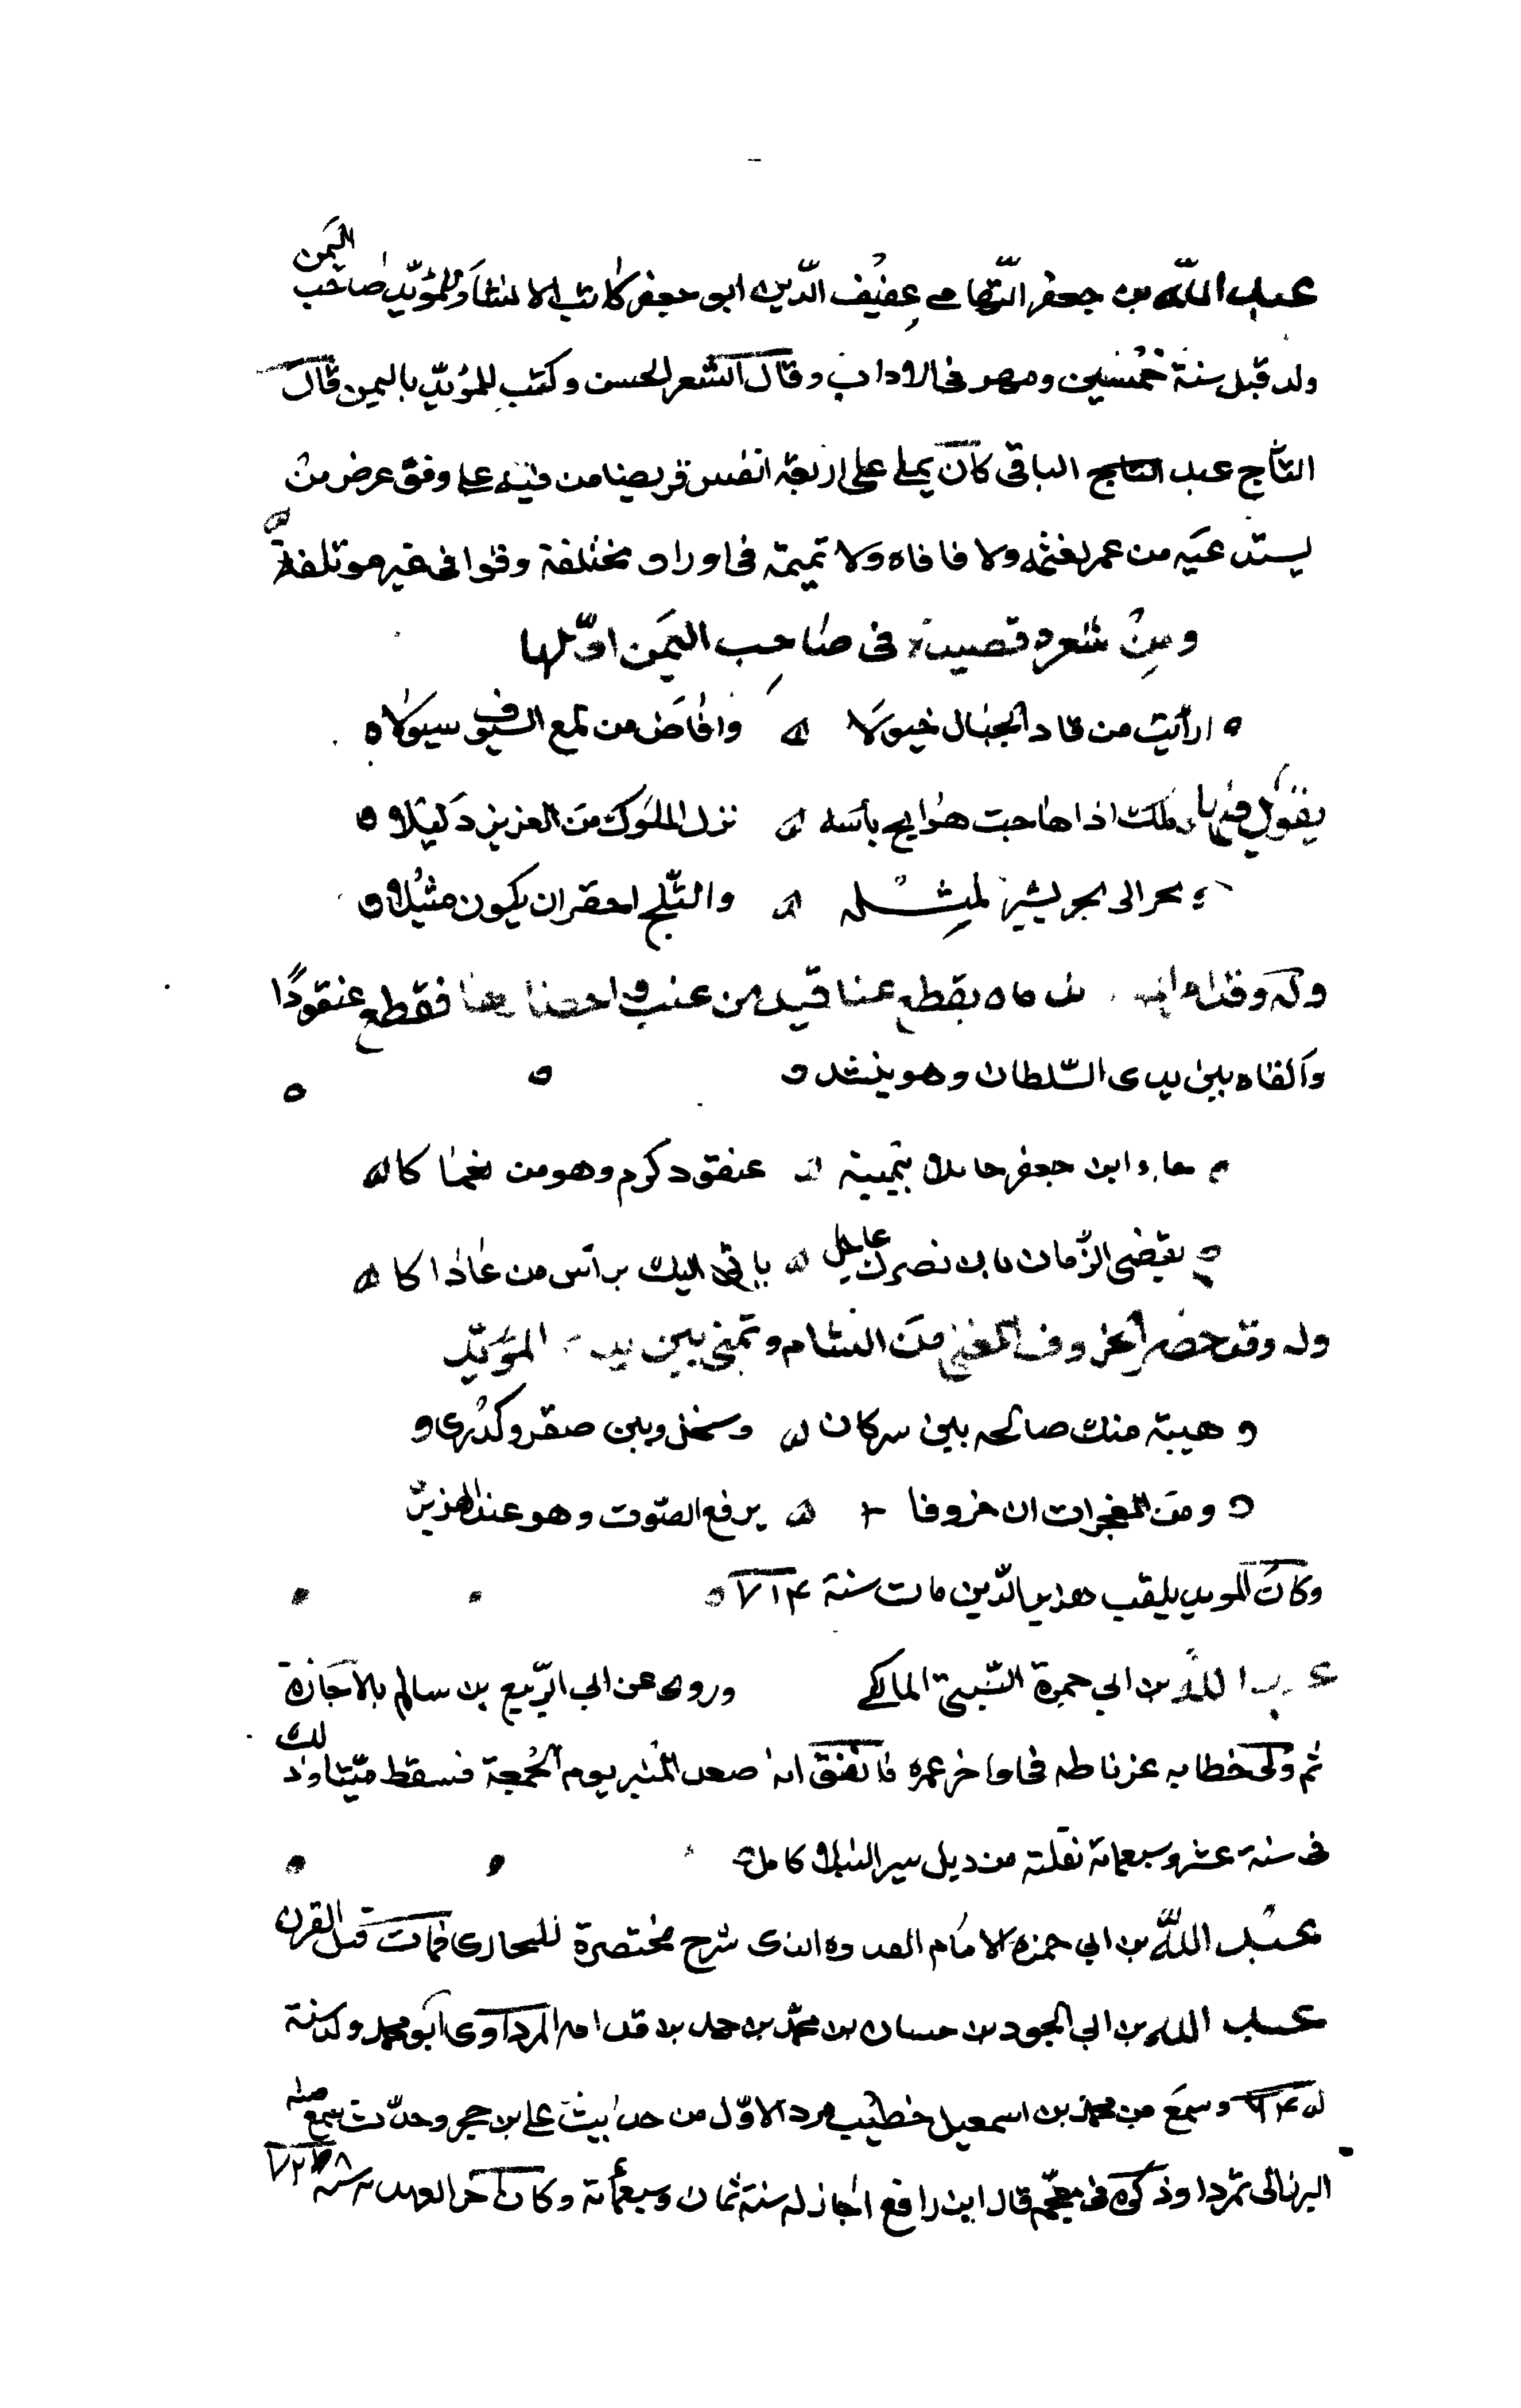 عبد الله بن جعفر التهامي عفيف الدين ابو جعفر كاتب الانشاء للمؤيد صاحب اليمن
ولد قبل سنة خمسين ومهر في الاداب وقال الشعر الحسن وكتب للمؤيد باليمن قال
التاج عبد الباقي كان يملي على اربعة انفس قريضا من فيه على وفق غرض من
يستدعيه من غير لعثمه ولا فافاه ولا تمتمة في اوراد مختلفة وقوافى غير موتلفة
ومن شعره قصيدة فى صاحب اليمن اولها
ارأيت من قاد الجبال خيولا وافاض من لمع السيوف سيولا
يقول فيها ملك اذا هاجت هوايج بأسه نزل الملوك من العزيز ذليلا
بحر الى بحر يسير لمثله والثلج احقر ان يكون مثيلا
وله وقد امر ندماه بقطع عناقيد من عنب واحضارها فقطع عنقودا
والقاه بين يدى السلطان وهو ينشد
جاء ابن جعفر حاملا بيمينه عنقود كرم وهو من نعماكا
يقضى الزمان بان نصرك عاجل ياتى اليك براس من عاداكا
وله وقد حضر الخروف المغنى من الشام وتمنى بين يدى المؤيد
وهيبة منك صالحه بين سركان وسخل وبين صقر وكدرى
ومن المعجزات ان خروفا يرفع الصوت وهو عند الهزبر
وكان المويد يلقب هزبر الدين مات سنة ٧١٤
عبد الله بن ابي جمرة السبتي المالكي وروى عن ابى الربيع بن سالم بالاجازة
ثم ولى خطابه غرناطه فى اواخر عمره فاتفق انه صعد المنبر يوم الجمعة فسقط ميتا وذلك
فى سنة عشر وسبعماية نقلته من ذيل سير النبلا كاملا
عبد الله بن ابي حمزه الامام القدوه الذى شرح مختصرة للبخارى فمات قبل القرن
عبد الله بن ابي الجود بن حسان بن محمد بن حمد بن قدامه المرداوى ابو محمد ولد سنة
وسمع من محمد بن اسمعيل خطيب مردا الاول من حديث على بن حجر وحدث سمع منه
البرزالى بمردا وذكره فى معجمه قال ابن رافع اجاز لى سنة ثمان وسبعمائة وكان اخر العهد به سنة ٧٢٨